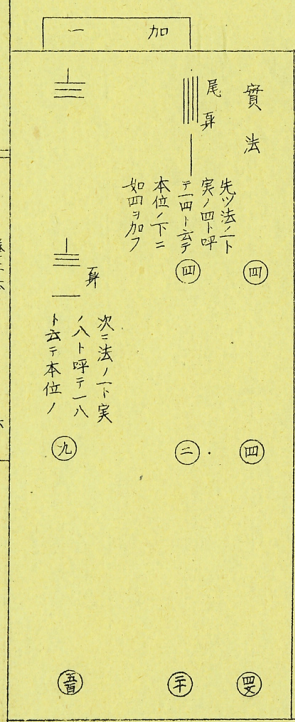 加一
實 法
尾 身
先ツ法ノ一ト
実ノ四ト呼
テ一四ト云テ
本位ノ下ニ
如四ヲ加フ
身
次ニ法ノ一ト実
ノ八ト呼テ一八
ト云テ本位ノ
四
四
四
二
九